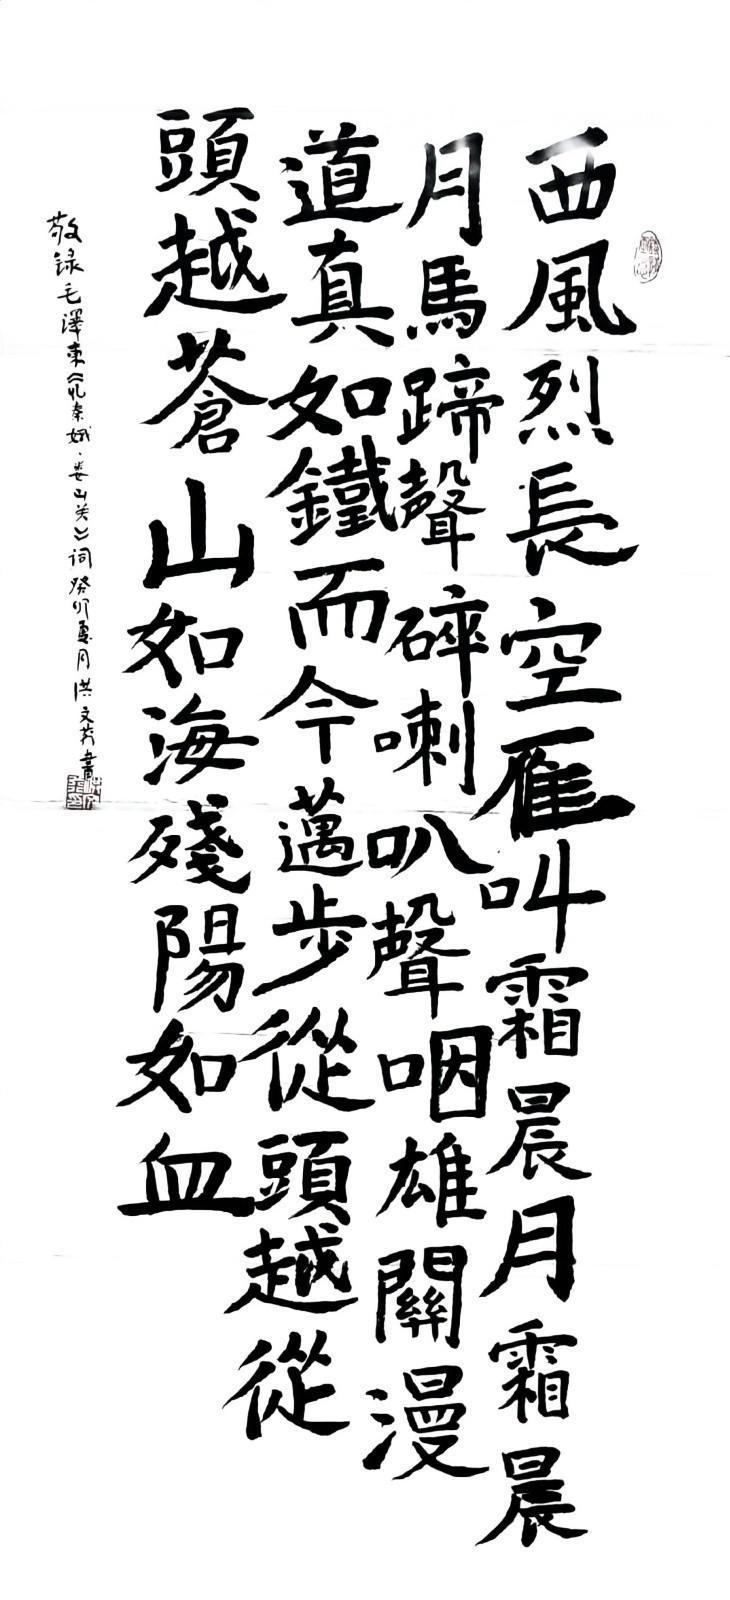 西風烈長空雁叫霜晨月霜晨
月馬蹄聲碎喇叭聲咽雄關漫
道真如鐵而今邁步從頭越從
頭越蒼山如海殘陽如血
敬録毛澤東《忆秦娥·娄山关》词癸卯夏月洪文芳書